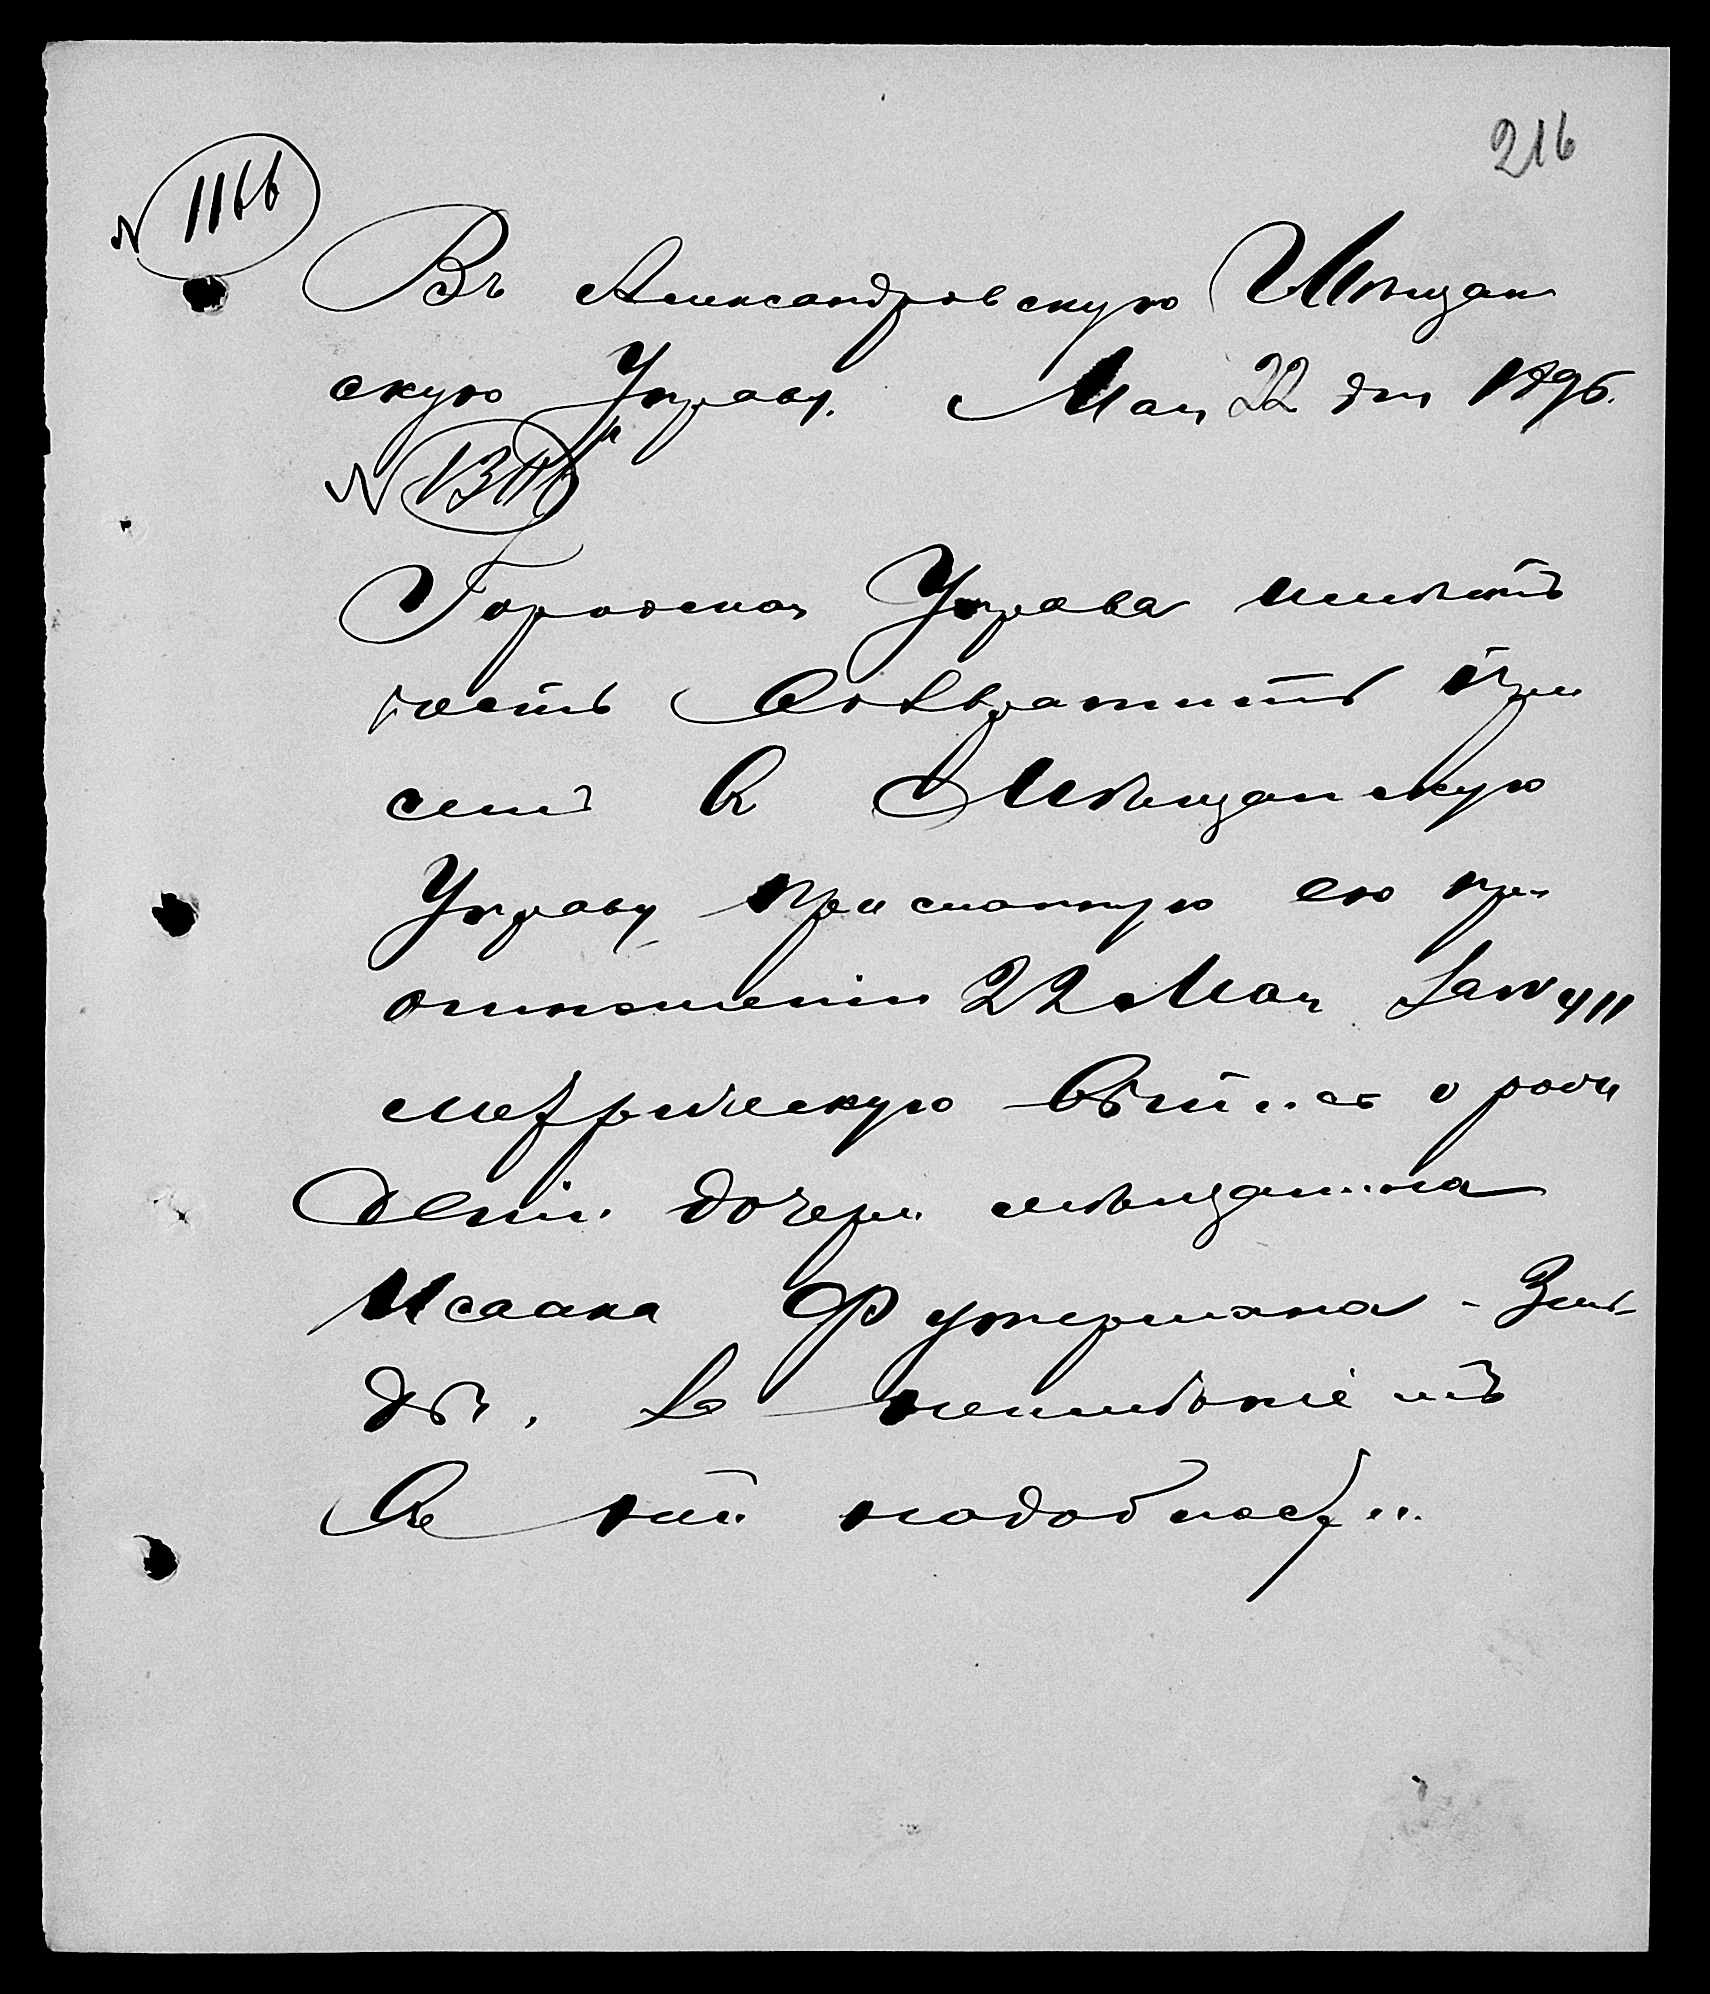 216
№ 1166
Въ Александровскую Мѣщан
скую Управу. Мая 22 дня 1896.
№
Городская Управа имѣетъ
честь возвратить при
семъ въ Мѣщанскую
Управу присланную ею при
отношеніи 22 Мая за №
метрическую о рож
деніи дочери мѣщанина
Исаака Футермана - Зель-
ды, за неимѣніемъ
въ ней надобности.